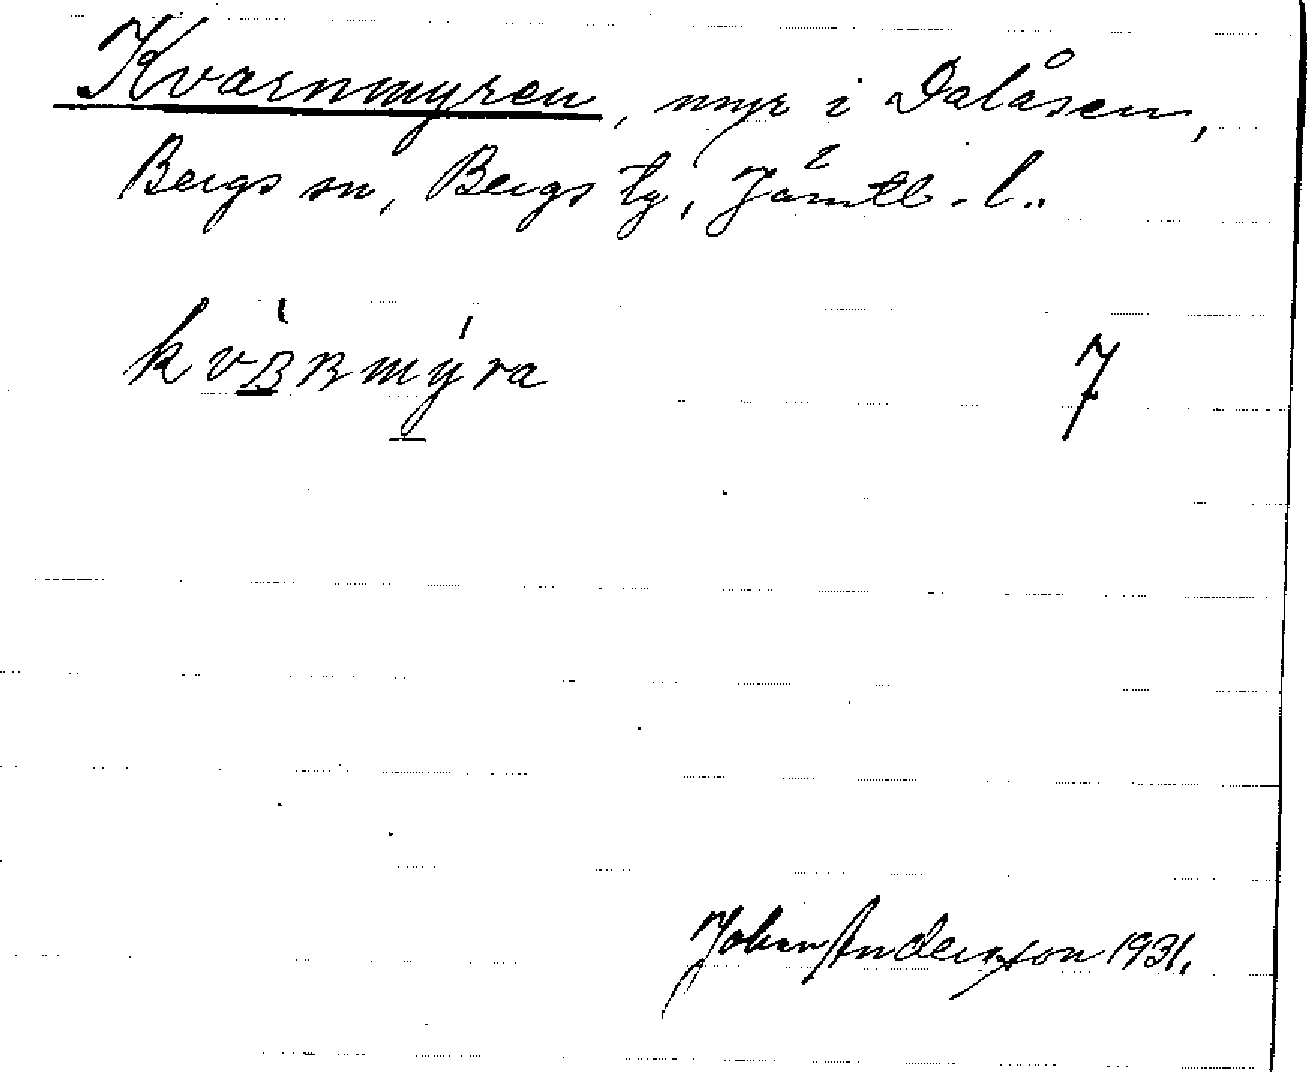 Kvarnmyren, myr i Dalåsen,
Bergs sn, Bergs tg, Jämtl. l..
7
Johan Anderson 1931.